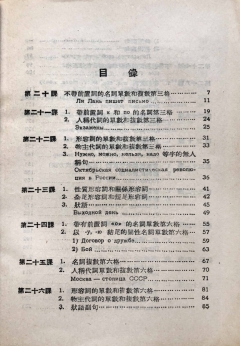 目錄
第二十課 不帶前置詞的名詞單數和複數第三格 7
Ли Лань пишет письмо 11
第二十一課 1. 帶前置詞 к 和 по 的名詞第三格 19
2. 人稱代詞的單數和複數第三格 24
Экзамены 25
第二十二課 1. 形容詞的單數和複數第三格 31
2. 物主代詞的單數和複數第三格 33
3. Нужно, можно, нельзя, надо 等字的無人稱句 35
Октябрьская социалистическая революция в России 36
第二十三課 1. 性質形容詞和關係形容詞 41
2. 長尾形容詞和短尾形容詞 42
3. 狀語 46
Выходной день 49
第二十四課 1. 帶有前置詞 «о» 的名詞單數第六格 55
2. 以 -у, -ю 結尾的陽性名詞單數第六格 57
1) Договор о дружбе 59
2) Бой 64
第二十五課 1. 名詞複數第六格 67
2. 人稱代詞單數和複數第六格 70
Москва — столица СССР 71
第二十六課 1. 形容詞的單數和複數第六格 81
2. 物主代詞的單數和複數第六格 83
3. 狀語副句 85